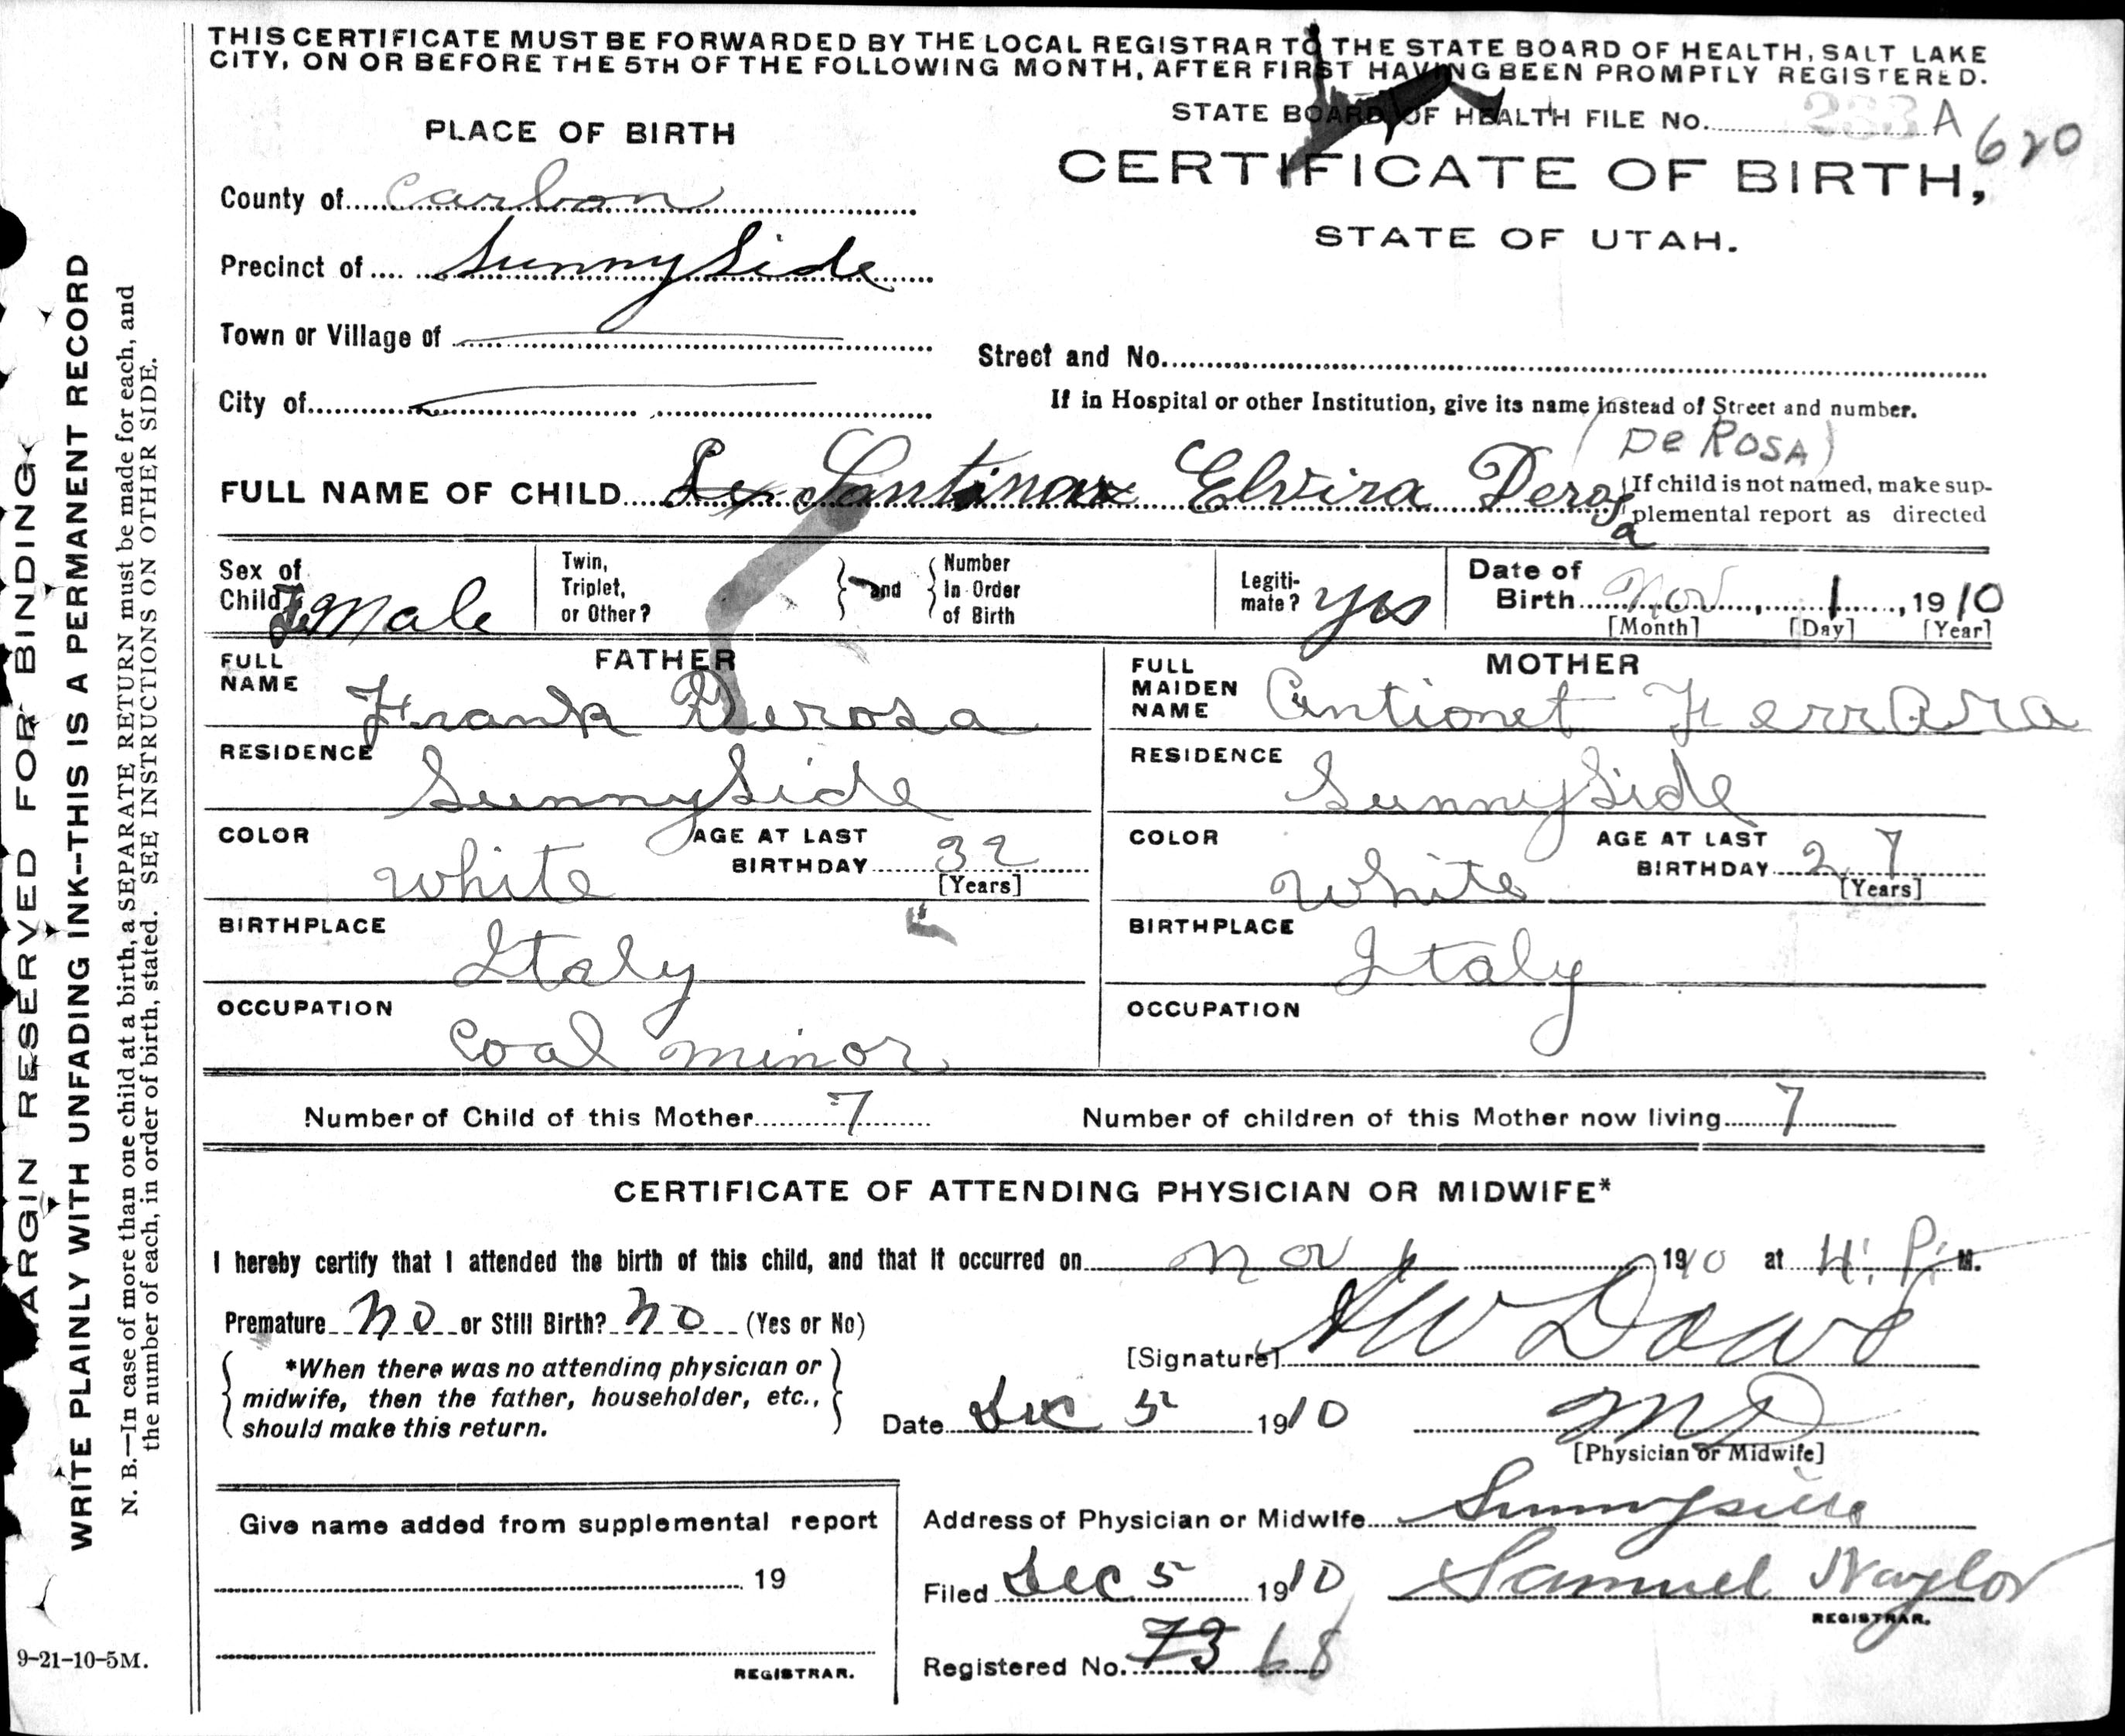 THIS CERTIFICATE MUST BE FORWARDED BY THE LOCAL REGISTRAR TO THE STATE BOARD OF HEALTH, SALT LAKE
CITY, ON OR BEFORE THE 5TH OF THE FOLLOWING MONTH, AFTER FIRST HAVING BEEN PROMPTLY REGISTERED.
STATE BOARD OF HEALTH FILE NO. A 620
PLACE OF BIRTH
CERTIFICATE OF BIRTH,
STATE OF UTAH.
County of Carbon
Precinct of Sunny Side
Town or Village of
Street and No.
City of
If in Hospital or other Institution, give its name instead of Street and number.
(De ROSA)
FULL NAME OF CHILD Elvira Derosa
{If child is not named, make sup-
plemental report as directed
Sex of Child FeMale
Twin, Triplet, or Other?
} and {
Number In Order of Birth
Legiti-mate? yes
Date of Birth Nov, 1, 1910
[Month] [Day] [Year]
FATHER
FULL NAME Frank Derosa
RESIDENCE Sunny Side
COLOR White
AGE AT LAST BIRTHDAY 32
[Years]
BIRTHPLACE Italy
OCCUPATION Coal minor
MOTHER
FULL MAIDEN NAME Antionet Ferrara
RESIDENCE Sunny Side
COLOR White
AGE AT LAST BIRTHDAY 27
[Years]
BIRTHPLACE Italy
OCCUPATION
Number of Child of this Mother 7
Number of children of this Mother now living 7
CERTIFICATE OF ATTENDING PHYSICIAN OR MIDWIFE*
I hereby certify that I attended the birth of this child, and that it occurred on Nov 1 1910 at 4: P. M.
Premature No or Still Birth? No (Yes or No)
[Signature] Dowd
{ *When there was no attending physician or
midwife, then the father, householder, etc.,
should make this return. }
Date Dec 5 1910
MD
[Physician or Midwife]
Give name added from supplemental report
19
REGISTRAR.
Address of Physician or Midwife Sunnyside
Filed Dec 5 1910 Samuel Naylor
REGISTRAR.
Registered No. 73 68
MARGIN RESERVED FOR BINDING
WRITE PLAINLY WITH UNFADING INK--THIS IS A PERMANENT RECORD
N. B.—In case of more than one child at a birth, a SEPARATE RETURN must be made for each, and
the number of each, in order of birth, stated. SEE INSTRUCTIONS ON OTHER SIDE.
9-21-10-5M.